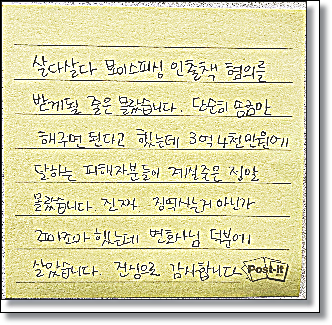 살다살다 보이스피싱 인출책 혐의를
받게될 줄은 몰랐습니다. 단순히 송금만
해주면 된다고 했는데 3억 4천만원에
달하는 피해자분들이 계실줄은 정말
몰랐습니다. 진짜 징역사는거 아닌가
조마조마 했는데 변호사님 덕분에
살았습니다 진심으로 감사합니다
Post-it